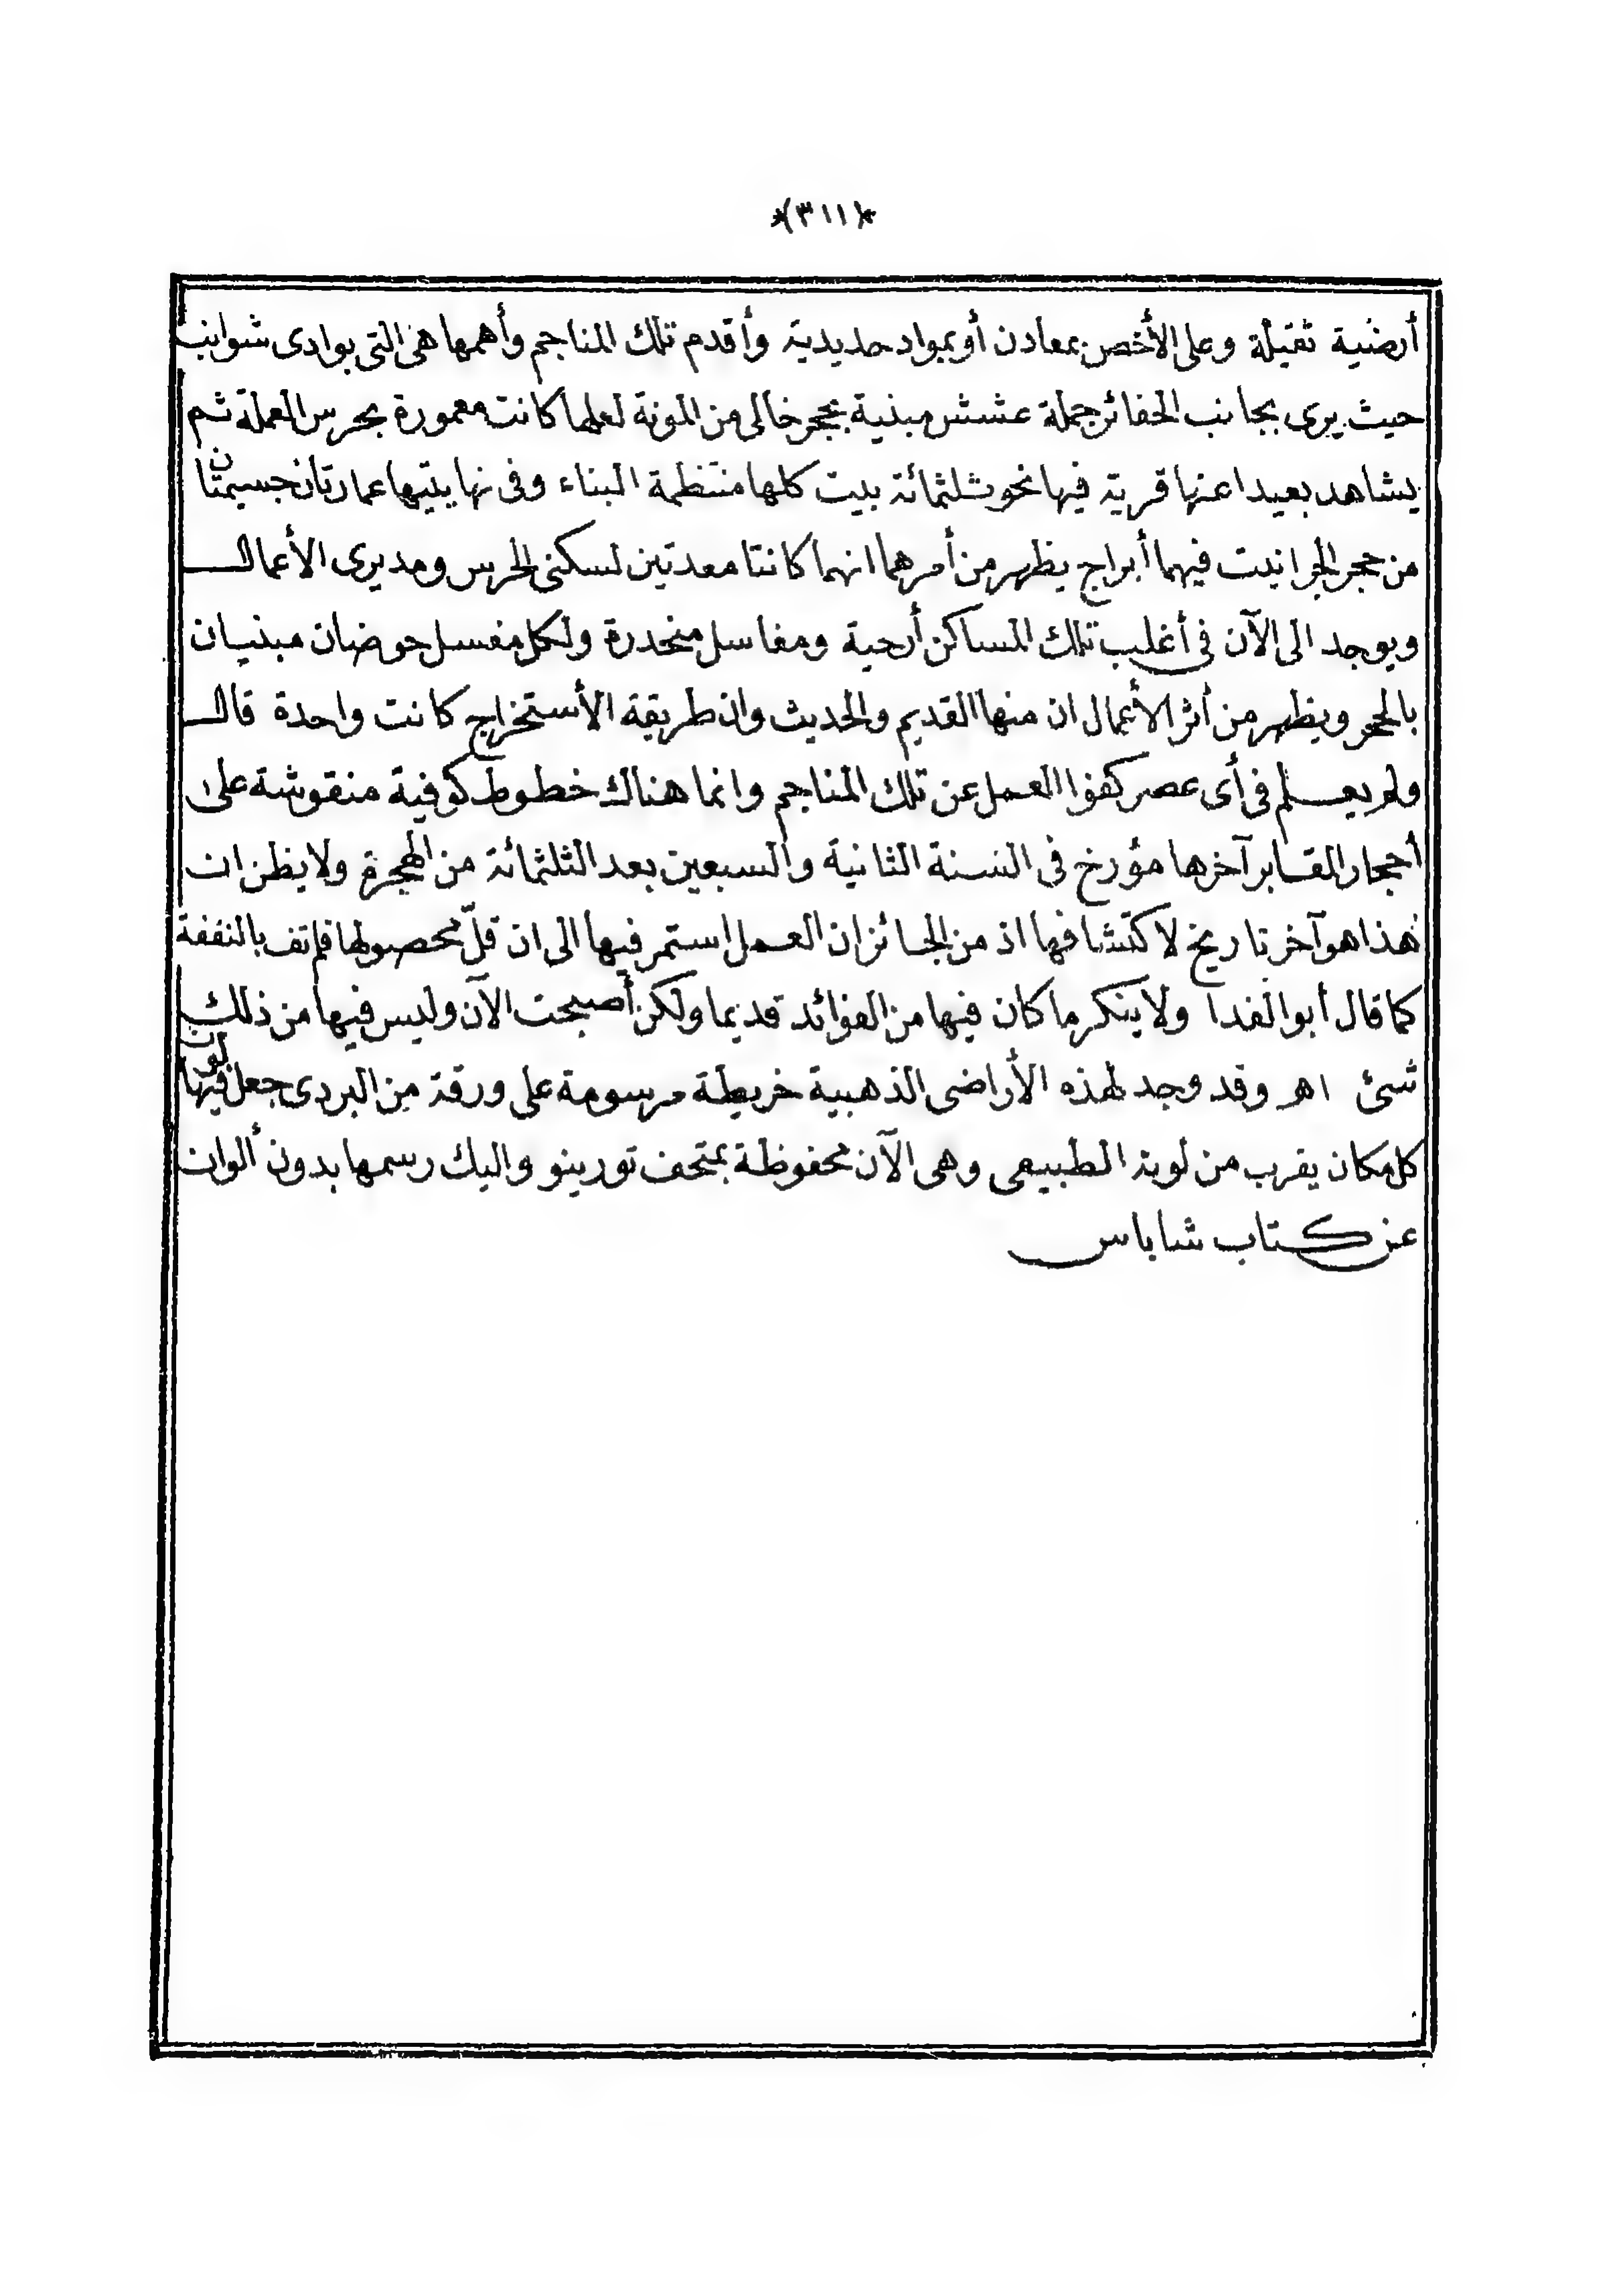 *(٣١١)*
أرضية ثقيلة وعلى الأخص بمعادن أو بمواد حديدية وأقدم تلك المناجم وأهمها هى التى بوادى شوانب
حيث يرى بجانب الحفائر جملة عشش مبنية بحجر خالى من المونة لعلها كانت معمورة بحرس العملة ثم
يشاهد بعيدا عنها قرية فيها نحو ثلثمائة بيت كلها منتظمة البناء وفى نهايتيها عمارتان جسيمتان
من حجر الجرانيت فيهما أبراج يظهر من أمرهما انهما كانتا معدتين لسكنى الحرس ومديرى الأعمال
ويوجد الى الآن فى أغلب تلك المساكن أرحية ومغاسل منحدرة ولكل مغسل حوضان مبنيان
بالحجر ويظهر من أثر الأعمال ان منها القديم والحديث وان طريقة الأستخراج كانت واحدة قال
ولم يعلم فى أى عصر كفوا العمل عن تلك المناجم وانما هناك خطوط كوفية منقوشة على
أحجار المقابر آخرها مؤرخ فى السنة الثانية والسبعين بعد الثلثمائة من الهجرة ولا يظن ان
هذا هو آخر تاريخ لاكتشافها اذ من الجائز ان العمل استمر فيها الى ان قلّ محصولها فلم تف بالنفقة
كما قال أبو الفدا ولا ينكر ما كان فيها من الفوائد قديما ولكن أصبحت الآن وليس فيها من ذلك
شئ اهـ وقد وجد لهذه الأراضى الذهبية خريطة مرسومة على ورقة من البردى جعل فيها لون
كل مكان يقرب من لونه الطبيعى وهى الآن محفوظة بمتحف تورينو واليك رسمها بدون ألوان
عن كتاب شاباس